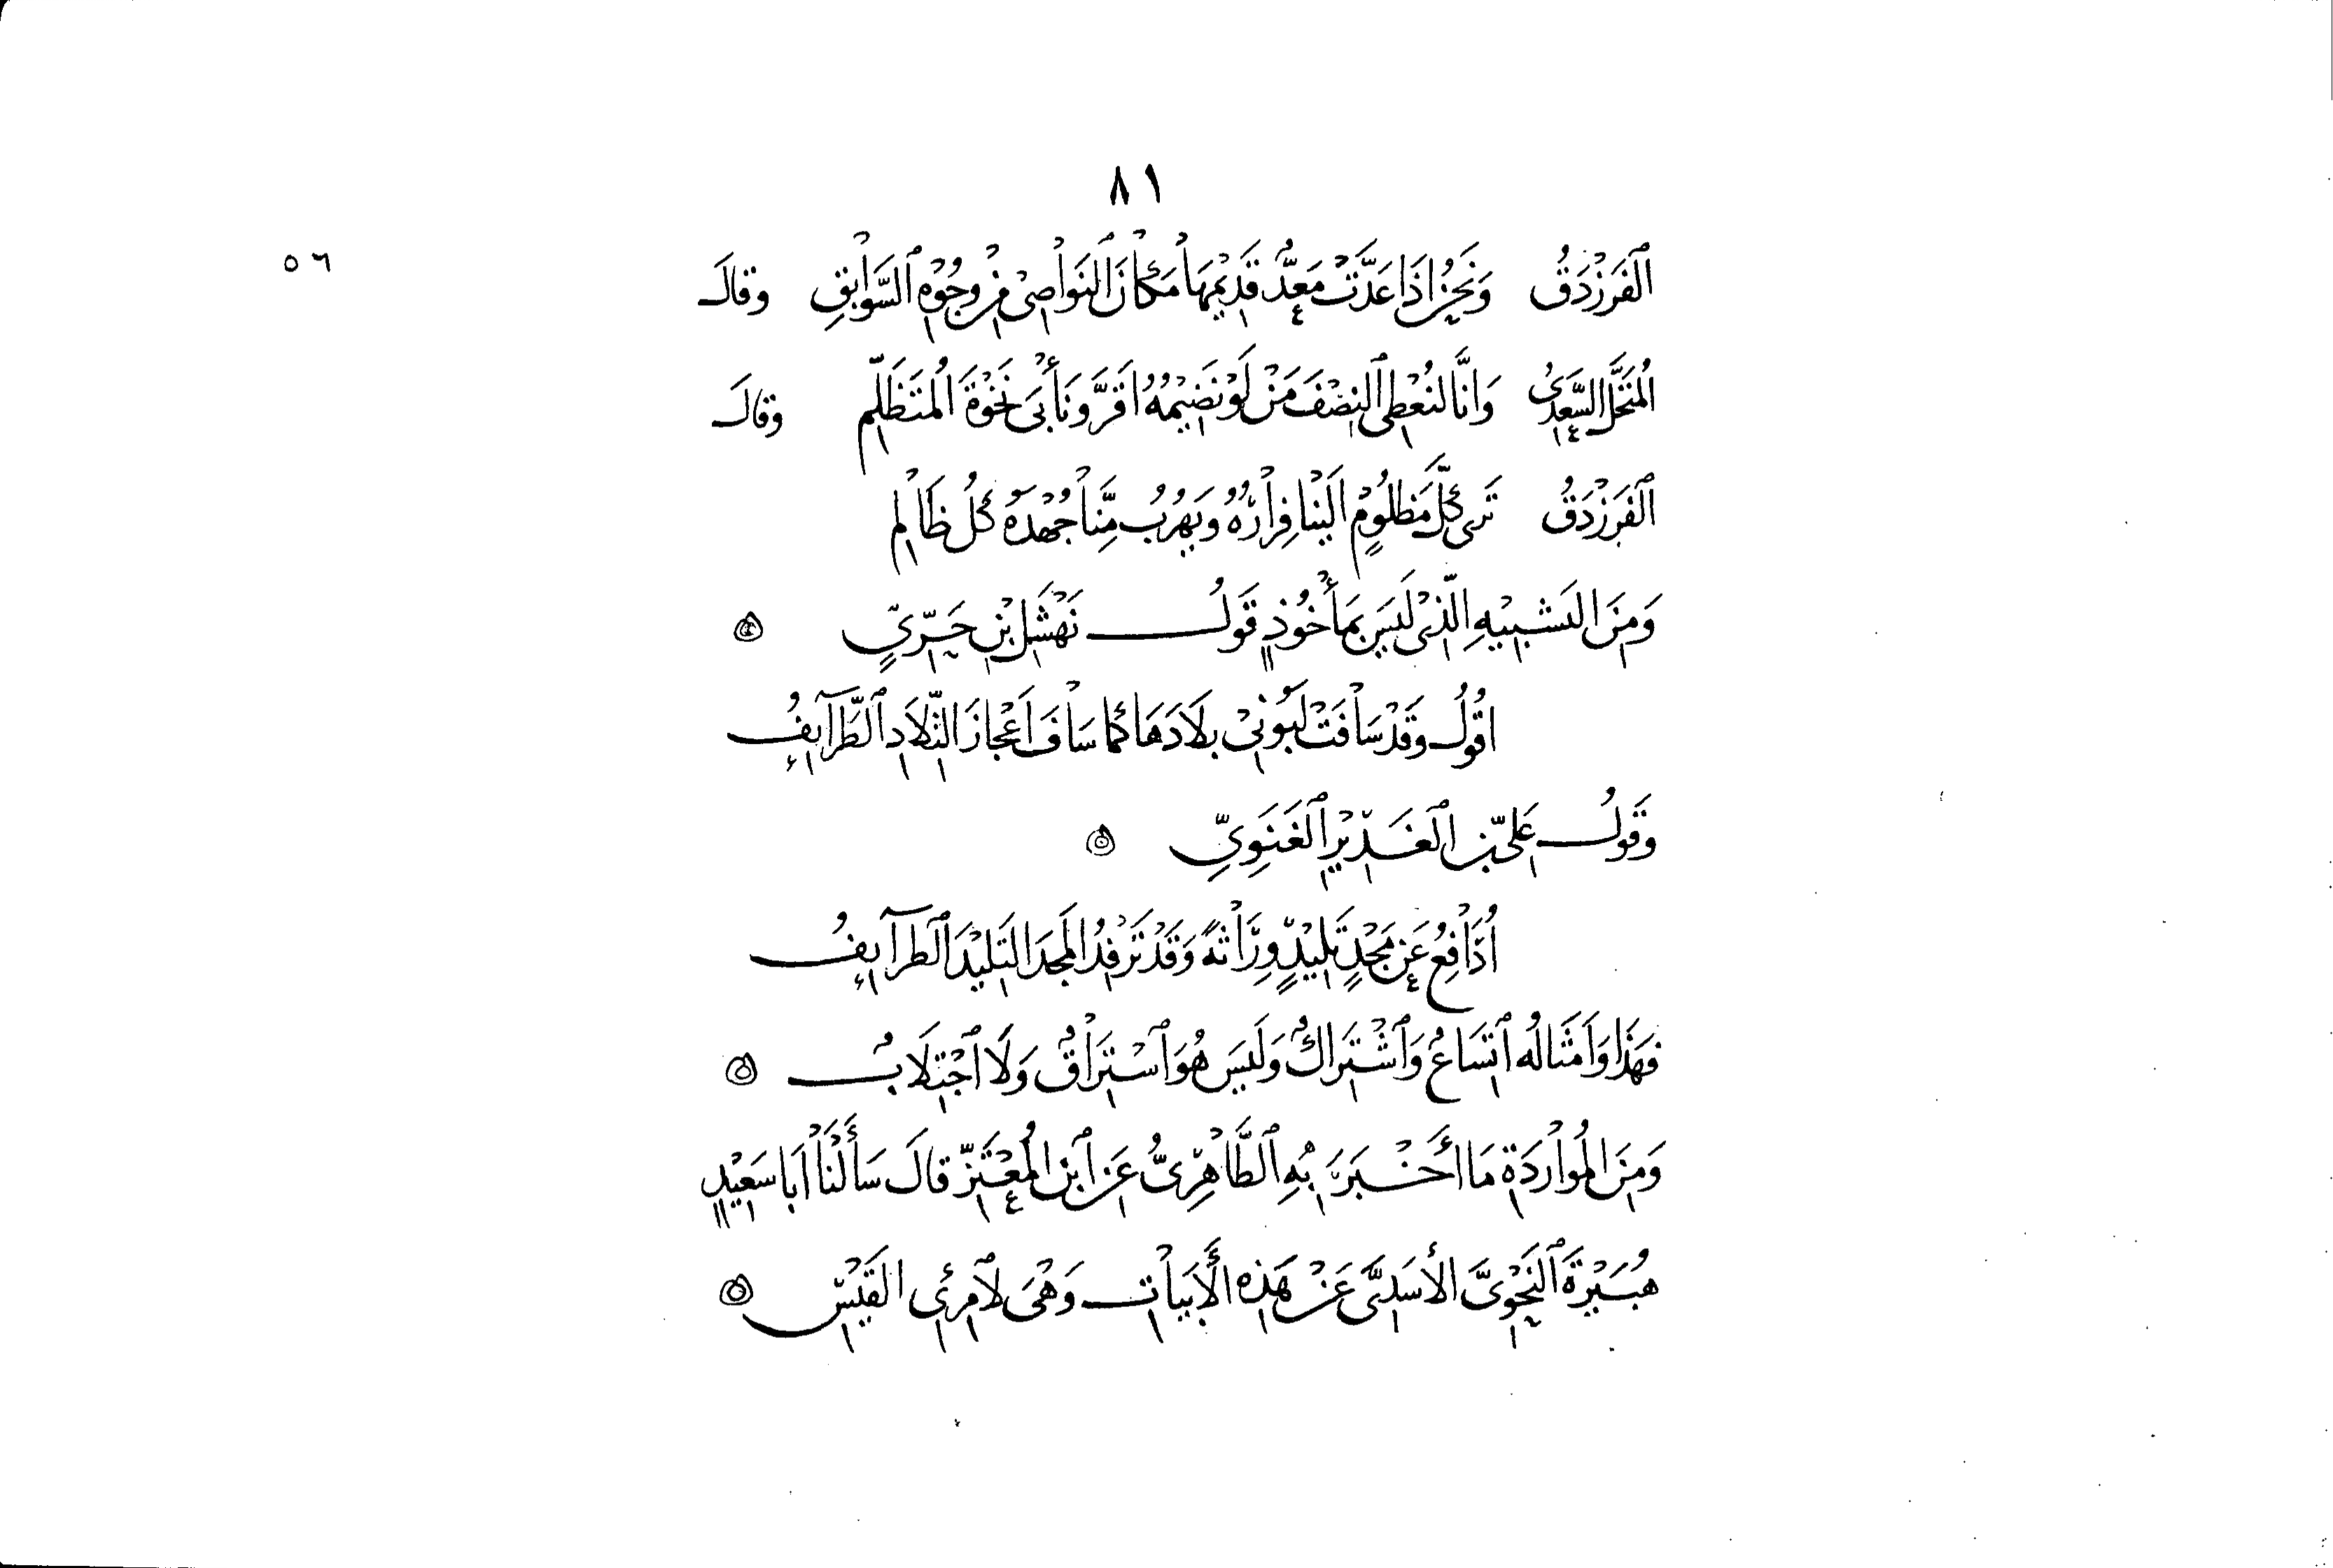 ٨١
٥٦
ٱلفَرَزْدَقُ وَنَحْنُ اذَا عَدَّتْ مَعَدٌّ قَدِيْمَهَا مَكَانَ ٱلنَوَاصِيْ فِيْ وجُوْهِ ٱلسَّوَابِقِ وقالَ
المُنَخَّلُ السَّعدِىُّ وَانَّا لنُعْطِى ٱلنِصْفَ مَنْ لَوْ نَضِيْمُهُ اقَرَّ ونَأْبَى نَخْوَةَ المُتَظَلِّمِ وقالَ
ٱلفَرَزْدَقُ تَرى كُلَّ مَظلُوْمٍ الَيْنَا فِرَارُهُ ويَهرُبُ مِنَّا جُهْدَهُ كُلُ ظَالِمِ
وَمِنَ التَشبِيْهِ الَّذِىْ لَيَسَ بمَأْخُوْذٍ قَولُ نَهْشَلِ بْنِ حَرِّىٍّ
اقُولُ وَقَدْ سَافَتْ لَبُوْنِىْ بلَادَهَا كما سَافَ اَعْجازَ التِّلَادِ ٱلطَّرَآئِفُ
وقَولُ عَلىّ بنِ ٱلغَدِيْرِ ٱلغَنَوِيِّ
اُدَافِعُ عَنْ مَجْدٍ تَلِيْدٍ وِرَاثَةً وَقَدْ تَرْفِدُ المَجدَ التَلِيْدَ ٱلطرآئِفُ
فهَذَا وَاَمثَالُه ٱتسَاعٌ وَٱشْتِرَاكٌ وَلَيَسَ هُوَ ٱسْتِرَاقٌ وَلَا ٱجْتِلَابٌ
وَمِنَ المُوَارَدَةِ مَا اَخْبَرَنَا بِهِ ٱلطَّاهِرِىُّ عَنِ ٱبنِ المُعْتَزِّ قالَ سَأَلْنَا اَبَا سَعِيْدٍ
هُبَيْرَةَ ٱلنَحْوِىَّ الأَسَدِىَّ عَنْ هَذِهِ الأَبيَاتِ وَهْىَ لٱمرِئِ القَيْسِ